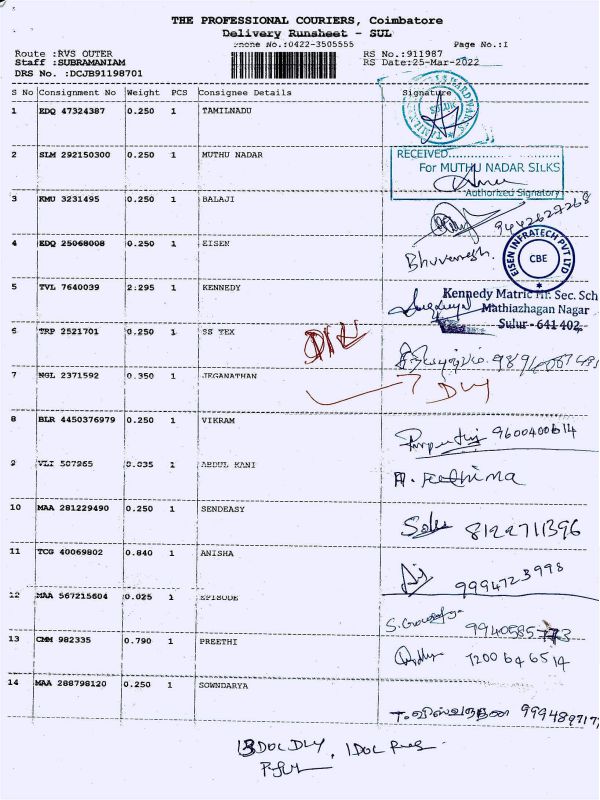 THE PROFESSIONAL COURIERS, Coimbatore
Delivery Runsheet - SUL
Phone No.:0422-3505555 Page No.:1
Route :RVS OUTER RS No.:911987
Staff :SUBRAMANIAM RS Date:25-Mar-2022
DRS No. :DCJB91198701
S No Consignment No Weight PCS Consignee Details Signature
1 EDQ 47324387 0.250 1 TAMILNADU
2 SLM 292150300 0.250 1 MUTHU NADAR
RECEIVED....................
For MUTHU NADAR SILKS
Authorized Signatory
3 KMU 3231495 0.250 1 BALAJI
9442627268
4 EDQ 25068008 0.250 1 EISEN
Bhuvanesh.
EISEN INFRATECH PVT LTD
CBE
5 TVL 7640039 2.295 1 KENNEDY
Kennedy Matric Hr. Sec. Sch
Mathiazhagan Nagar
Sulur - 641 402
6 TRP 2521701 0.250 1 SS TEX
7 NGL 2371592 0.350 1 JEGANATHAN
DLY
8 BLR 4450376979 0.250 1 VIKRAM
9600400614
9 VLI 507965 0.035 1 ABDUL KANI
A. Fathima
10 MAA 281229490 0.250 1 SENDEASY
8122711396
11 TCG 40069802 0.840 1 ANISHA
9994723998
12 MAA 567215604 0.025 1 EPISODE
9940585773
13 CMM 982335 0.790 1 PREETHI
7200646514
14 MAA 288798120 0.250 1 SOWNDARYA
13 DOC DLY, 1 DOC